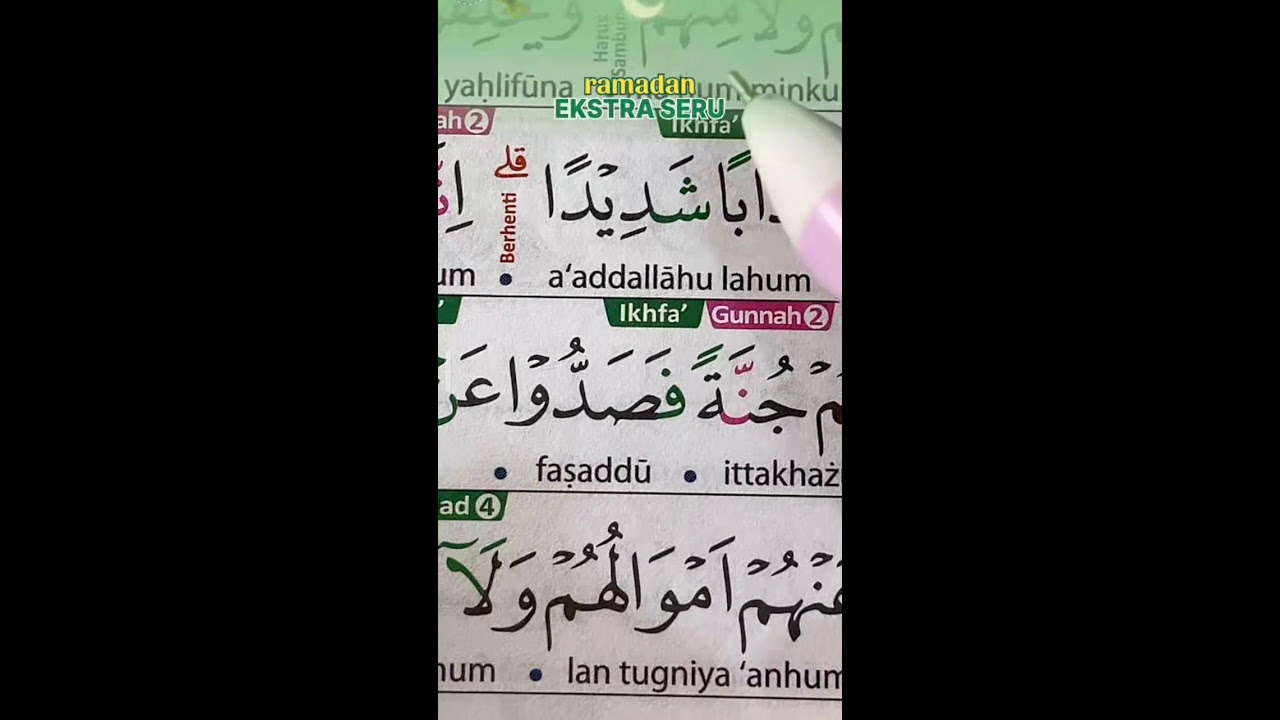 وَلَا مِنْهُمْ وَيَحْلِفُ
Harus Sambung
yaḥlifūna minku
ramadan
EKSTRA SERU
ah 2 Ikhfa’
ابًا شَدِيْدًا ۗ اِنَّ
قلى
Berhenti
um • a‘addallāhu lahum
Ikhfa’ Gunnah 2
جُنَّةً فَصَدُّوْا عَنْ
• faṣaddū • ittakhaż
ad 4
عَنْهُمْ اَمْوَالُهُمْ وَلَآ
hum • lan tugniya ‘anhum